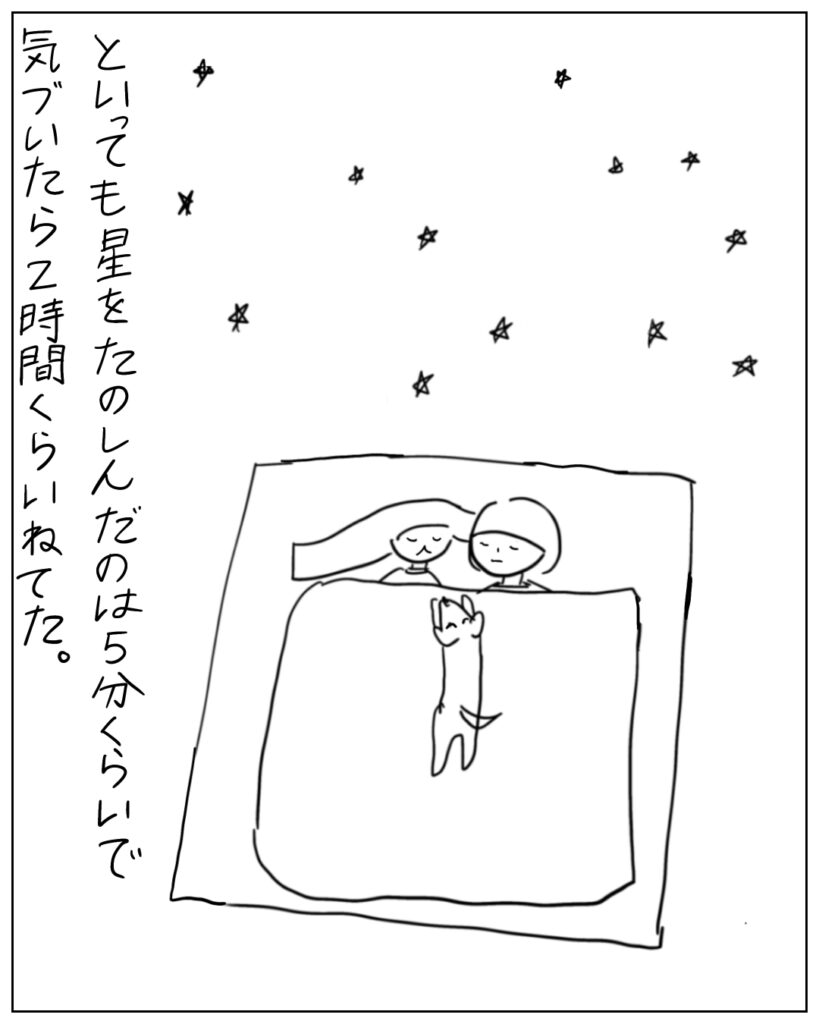 といっても星をたのしんだのは5分くらいで
気づいたら2時間くらいねてた。